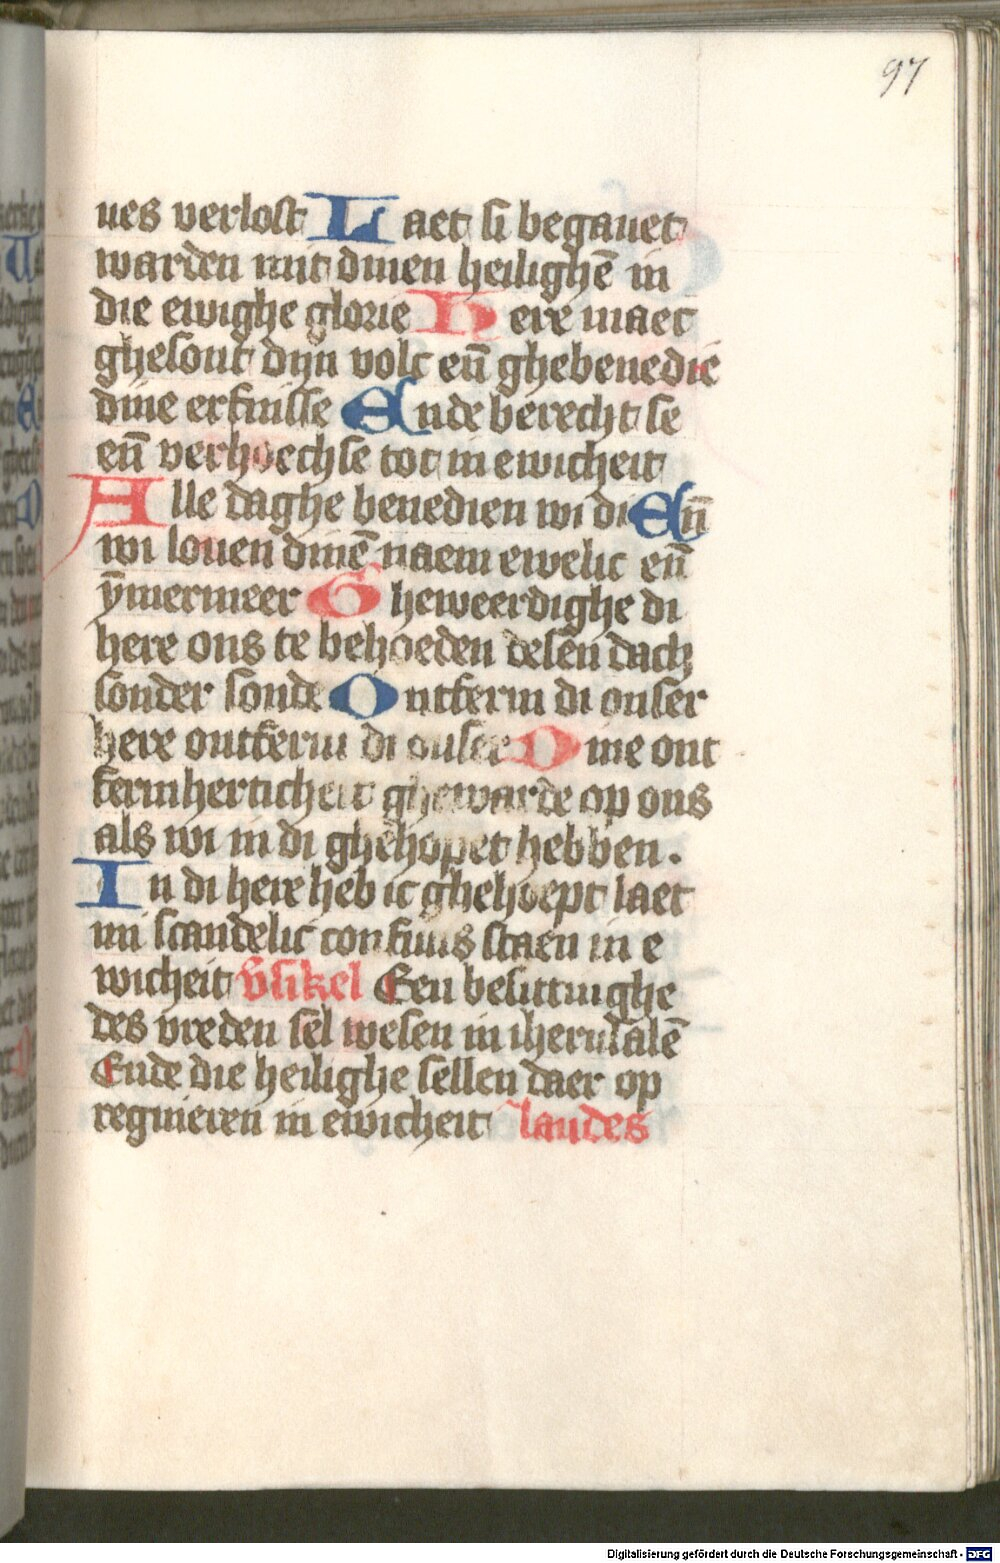 97
ues verlost Laet si begauet
warden mit dinen heilighē in
die ewighe glorie Here maec
ghesont dyn volc eñ ghebenedie
dine erfnisse Ende berecht se
eñ verhoech se tot in ewicheit
Alle daghe benedien wi di Eñ
wi louen dinē naem ewelic eñ
ȳmermeer Gheweerdighe di
here ons te behoeden desen dach
sonder sonde Ontferm di onser
here ontferm di onser Dine ont
fermherticheit ghewarde op ons
als wi in di ghehopet hebben.
In di here heb ic ghehoept laet
mi scandelic confuus staen in e
wicheit v̄sikel Een besittinghe
des vreden sel wesen in iherusalē
Ende die heilighe sellen daer op
regnieren in ewicheit laudes
Digitalisierung gefördert durch die Deutsche Forschungsgemeinschaft - DFG